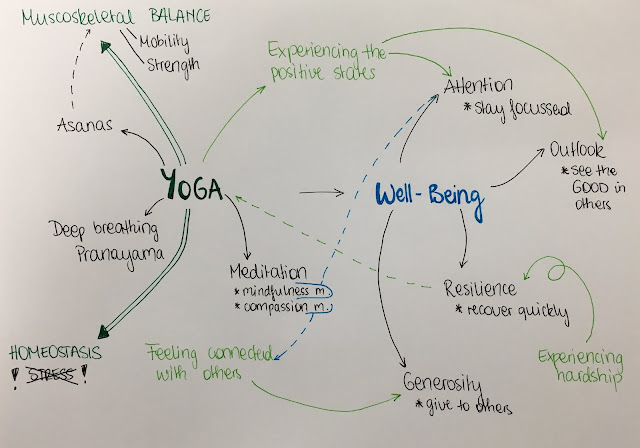 Muscoskeletal BALANCE
Mobility
Strength
Asanas
YOGA
Deep breathing
Pranayama
HOMEOSTASIS
! STRESS !
Meditation
* mindfulness m.
* compassion m.
Experiencing the
positive states
Feeling connected
with others
Well-Being
Attention
* stay focussed
Outlook
* see the
GOOD in
others
Resilience
* recover quickly
Experiencing
hardship
Generosity
* give to others